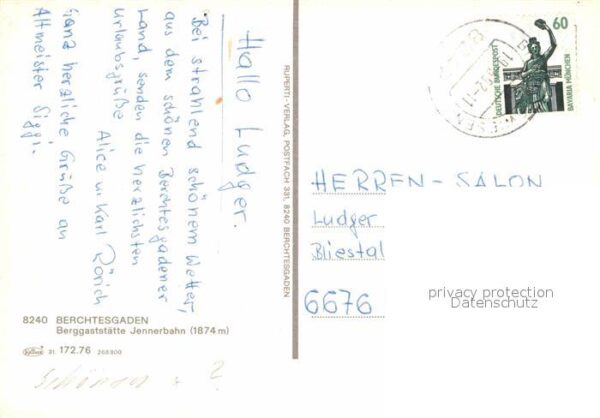 Hallo Ludger.
Bei strahlend schönem Wetter,
aus dem schönen Berchtesgadener
Land, senden die herzlichsten
Urlaubsgrüße
Alice u. Karl
Ganz herzliche Grüße an
Altmeister Siggi.
RUPERTI-VERLAG, POSTFACH 331, 8240 BERCHTESGADEN
60
DEUTSCHE BUNDESPOST
BAVARIA MÜNCHEN
HERREN-SALON
Ludger
Bliestal
6676
privacy protection
Datenschutz
8240 BERCHTESGADEN
Berggaststätte Jennerbahn (1874 m)
31 172.76 268800